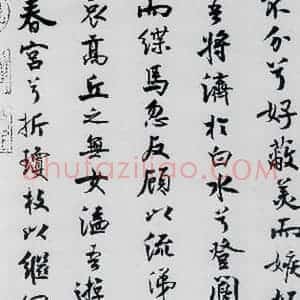 不分兮好蔽美而嫉妒
吾將濟於白水兮登閬
而緤馬忽反顧以流涕
哀高丘之無女溘吾遊
春宮兮折瓊枝以繼
shufaziliao.com